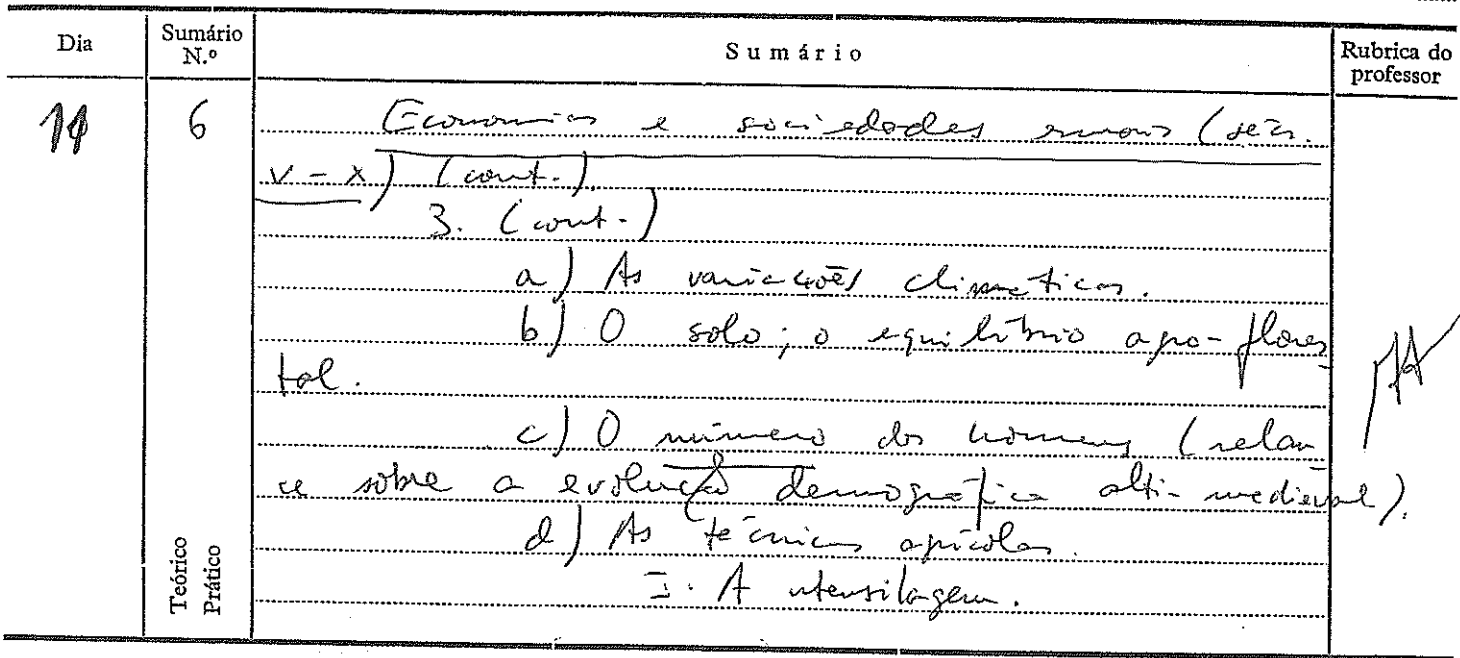 Dia
Sumário N.º
Sumário
Rubrica do professor
6
Economias e sociedades rurais (sécs.
V - X) (cont.).
3. (cont.)
a) As variações climáticas.
b) O solo; o equilíbrio agro-flores
tal.
c) O número dos homens (relan
ce sobre a evolução demográfica alti-medieval).
d) As técnicas agrícolas.
I. A utensilagem.
Teórico
Prático